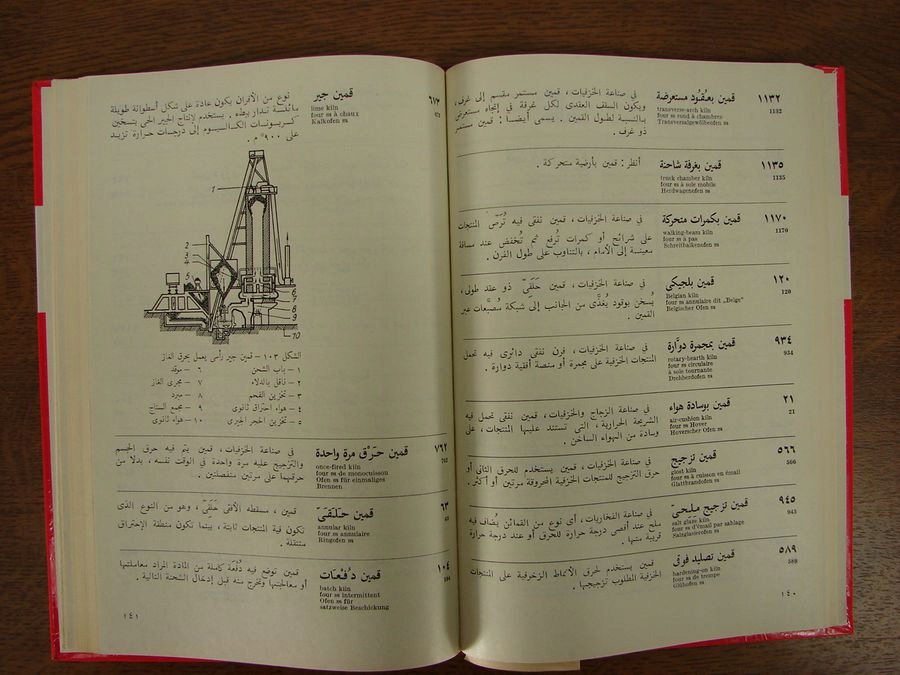 ١١٣٢ قمين بعُقُود مستعرضة
1132
transverse-arch kiln
four ss rond à chambres
Transversalgewölbeofen ss
في صناعة الخزفيات، قمين مستمر مقسم إلى غرف،
ويكون السقف العقدي لكل غرفة في إتجاه مستعرض
بالنسبة لطول القمين. يسمى أيضا: قمين مستمر
ذو غرف.
١١٣٥ قمين بغرفة شاحنة
1135
truck chamber kiln
four ss à sole mobile
Herdwagenofen ss
أنظر: قمين بأرضية متحركة.
١١٧٠ قمين بكمرات متحركة
1170
walking-beam kiln
four ss à pas
Schreitbalkenofen ss
في صناعة الخزفيات، قمين نفقي فيه تُرَصّ المنتجات
على شرائح أو كمرات تُرفع ثم تُخفض عند مسافة
معينة إلى الأمام، بالتناوب على طول الفرن.
١٢٠ قمين بلجيكي
120
Belgian kiln
four ss annulaire dit „Belge"
Belgischer Ofen ss
في صناعة الخزفيات، قمين حَلَقيّ ذو عقد طولى،
يُسخن بوقود يُغذَّى من الجانب إلى شبكة مُصبَّعات عبر
القمين.
٩٣٤ قمين بمجمرة دوّارة
934
rotary-hearth kiln
four ss circulaire
à sole tournante
Drehherdofen ss
في صناعة الخزفيات، فرن نفقى دائرى فيه تحمل
المنتجات الخزفية على مجمرة أو منصة أفقية دوارة.
٢١ قمين بوسادة هواء
21
air-cushion kiln
four ss Hover
Hoverscher Ofen ss
في صناعة الزجاج والخزفيات، قمين نفقي تحمل فيه
الشريحة الحرارية، التى تستند عليها المنتجات، على
وسادة من الهواء الساخن.
٥٦٦ قمين تزجيج
566
glost kiln
four ss à cuisson en émail
Glattbrandofen ss
في صناعة الخزفيات، قمين يستخدم للحرق الثاني أو
حرق التزجيج للمنتجات الخزفية المحروقة مرتين أو أكثر.
٩٤٥ قمين تزجيج ملحيّ
945
salt glaze kiln
four ss d'émail par sablage
Salzglasierofen ss
في صناعة الفخاريات، أى نوع من القمائن يُضاف فيه
ملح عند أقصى درجة حرارة للحرق أو عند درجة حرارة
قريبة منها.
٥٨٩ قمين تصليد فوقى
589
hardening-on kiln
four ss de trempe
Glühofen ss
قمين يستخدم لحرق الأنماط الزخرفية على المنتجات
الخزفية المطلوب تزجيجها.
١٤٠
٦٧٣ قمين جير
673
lime kiln
four ss à chaux
Kalkofen ss
نوع من الأفران يكون عادة على شكل أسطوانة طويلة
مائلة تدار ببطء. يستخدم لإنتاج الجير الحى بتسخين
كربونات الكالسيوم إلى درجات حرارة تزيد
على ٩٠٠°م.
1
2
3
4
5
6
7
8
9
10
الشكل ١٠٣ – قمين جير رأسى يعمل بحرق الغاز
١ – باب الشحن
٦ – موقد
٢ – ناقل بالدلاء
٧ – مجرى الغاز
٣ – تخزين الفحم
٨ – مبرد
٤ – هواء احتراق ثانوى
٩ – مجمع الستاج
٥ – تخزين الحجر الجيرى
١٠ – هواء ثانوى
٧٦٢ قمين حَرْق مرة واحدة
762
once-fired kiln
four ss de monocuisson
Ofen ss für einmaliges
Brennen
في صناعة الخزفيات، قمين يتم فيه حرق الجسم
والتزجيج عليه مرة واحدة في الوقت نفسه، بدلا من
حرقهما على مرتين منفصلتين.
٦٣ قمين حَلَقىّ
63
annular kiln
four ss annulaire
Ringofen ss
قمين، مسقطه الأفقى حَلَقىّ، وهو من النوع الذى
تكون فيه المنتجات ثابتة، بينما تكون منطقة الإحتراق
متنقلة.
١٠٤ قمين دُفْعَات
104
batch kiln
four ss intermittent
Ofen ss für
satzweise Beschickung
قمين توضع فيه دُفعة كاملة من المادة المراد معاملتها
أو معالجتها وتخرج منه قبل إدخال الشحنة التالية.
١٤١